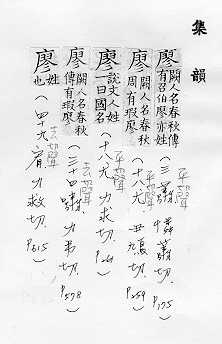 集韻
廖 闕人名春秋傳有召伯廖亦姓 (三蕭 憐蕭切. P175)
廖 闕人名春秋周有瑕廖 (十八尤 丑鳩切. P259)
廖 說文人姓一曰國名 (十八尤 力求切. P261)
廖 闕人名春秋傳有瑕廖 (三十四嘯 力弔切. P578)
廖 姓也 (四十九宥 力救切. P615)
平聲
平聲
平聲
去聲
去聲